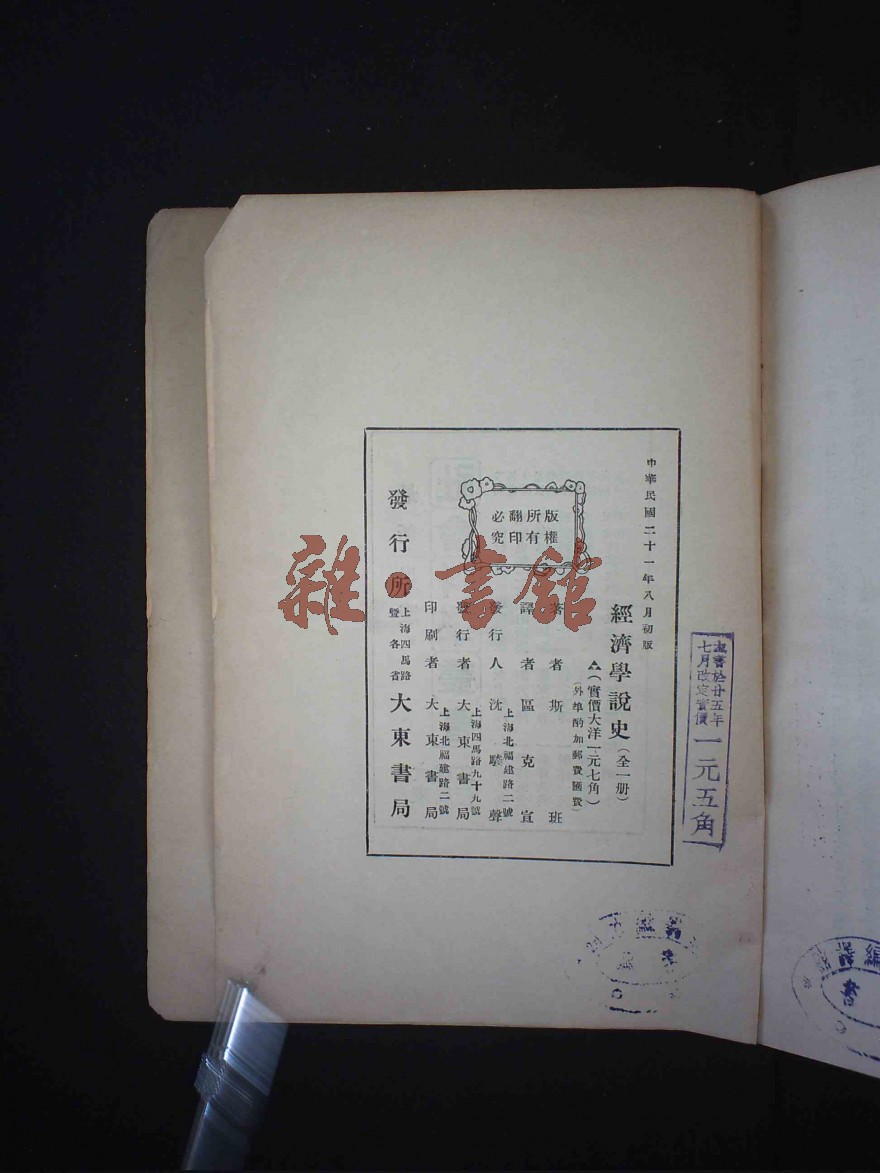 中華民國二十一年八月初版
經濟學說史（全一册）
（實價大洋一元七角）
（外埠酌加郵費匯費）
著者斯班
譯者區克宣
發行人沈駿聲
上海北福建路二號
發行者大東書局
上海四馬路九十九號
印刷者大東書局
上海北福建路二號
發行所
上海四馬路
暨各省
大東書局
版權
所有
翻印
必究
本書於廿五年
七月改定實價
一元五角
雜·書館
編譯
書